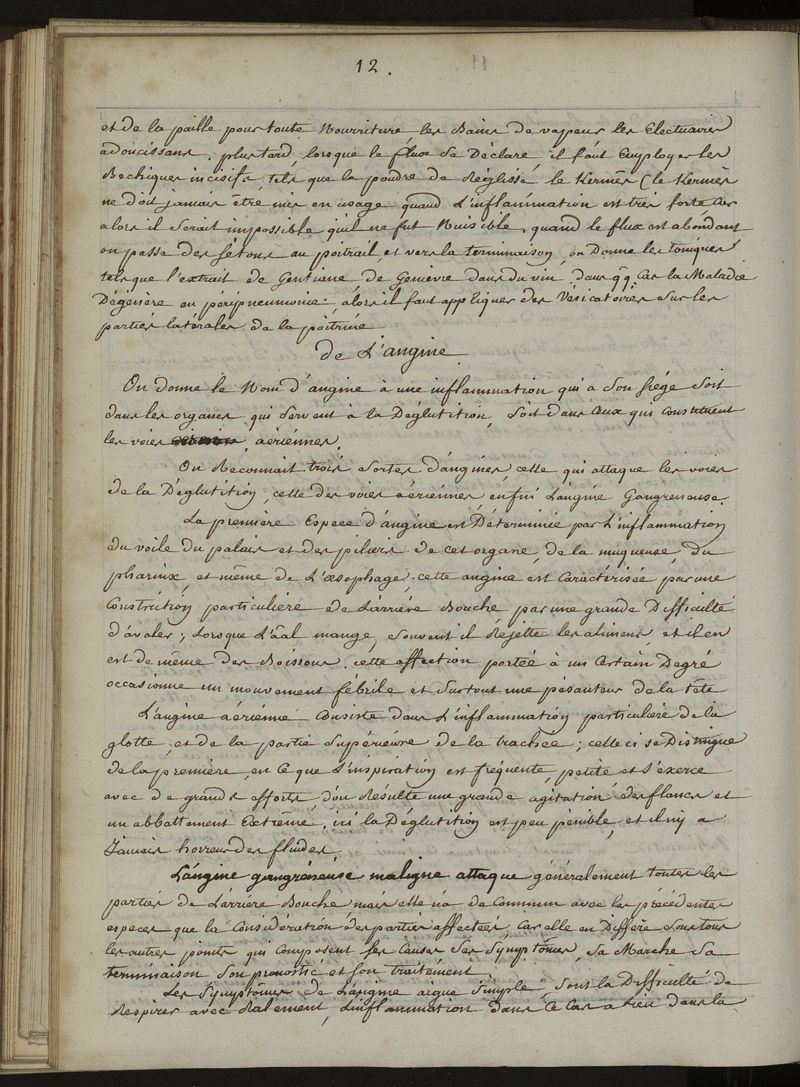 12.
et de la paille pour toute Nourriture, les Bains de vapeurs les Electuaires
adoucissans. plus tard, lorsque le flux se Déclare il faut Employer les
Bechiques incisifs, tels que la poudre de Réglisse, le Kermès (le Kermès
ne doit jamais être mis en usage quand L'inflammation est très forte car
alors il serait impossible qu'il ne fut Nuisible. quand le flux est abondant
on passe des sétons au poitrail et vers la terminaison, on Donne les toniques
tels que l'extrait de Gentiane, de Genièvre dans du vin. dans qq. Cas la Maladie
Dégénère en peripneumonie, alors il faut appliquer des Vésicatoires sur les
parties latérales de la poitrine
de L'angine
On donne le Nom d'angine à une inflammation qui a son siége soit
dans les organes qui servent à la Déglutition, soit dans Ceux qui constituent
les voies aériennes.
On Reconnait trois sortes d'angines, celle qui attaque les voies
de la Déglutition, celle des voies aériennes, enfin L'angine Gangreneuse.
La première Espece d'angine est Déterminée par L'inflammation
du voile du palais et des piliers de cet organe, de la muqueuse, du
pharinx, et même de L'œsophage; cette angine est Caractérisée par une
Constriction particulière de L'arrière Bouche par une grande Difficulté
d'avaler; Lorsque L'aal mange, souvent il Rejette les alimens, et il en
est de même des Boissons. cette affection portée à un Certain Degré
occasionne un mouvement fébrile et surtout une pésanteur de la tête
L'angine aérienne Consiste dans L'inflammation particulière de la
glotte, et de la partie supérieure de la trachée; celle ci se Distingue
de la première, en ce que L'inspiration est fréquente, petite et s'exerce
avec de grands efforts, d'ou Résulte une grande agitation des flancs et
un abbattement Extrême, ici la Déglutition est peu penible, et il n'y a
Jamais horreur des fluides.
L'angine gangréneuse maligne attaque généralement toutes les
parties de L'arrière Bouche mais elle n'a de Commun avec les précédentes
especes que la Considération des parties affectées, Car elle en Diffère sous tous
les autres points qui composent ses Causes ses symptômes, sa Marche sa
terminaison son pronostic et son traitement.
Les symptômes de L'angine aigue simple, sont la Difficulté de
Respirer avec Ralement, L'inflammation dans ce Cas a Lieu dans la